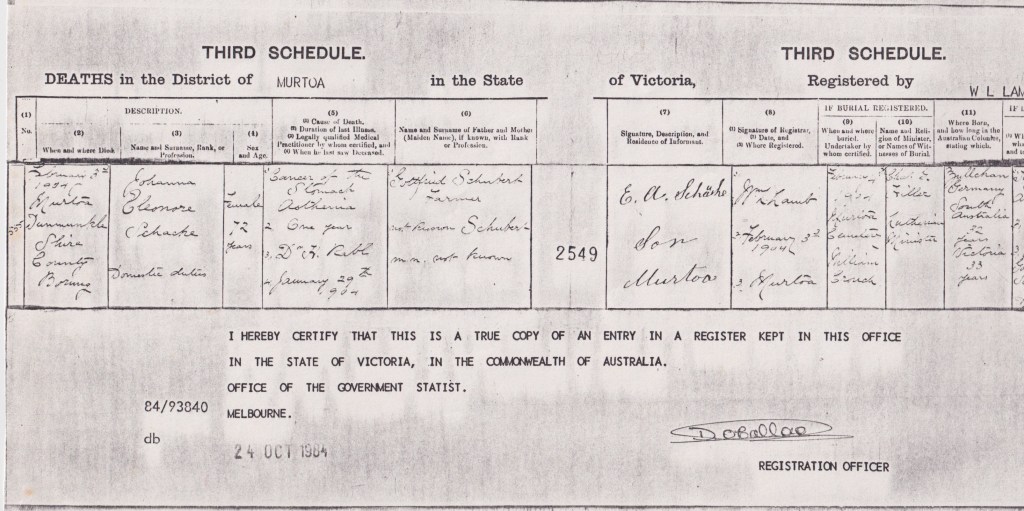 THIRD SCHEDULE.
THIRD SCHEDULE.
DEATHS in the District of MURTOA in the State of Victoria, Registered by W L LAM
(1)
No.
DESCRIPTION.
(2)
When and where Died
(3)
Name and Surname, Rank, or
Profession.
(4)
Sex
and Age.
(5)
(1) Cause of Death,
(2) Duration of last Illness,
(3) Legally qualified Medical
Practitioner by whom certified, and
(4) When he last saw Deceased.
(6)
Name and Surname of Father and Mother
(Maiden Name), if known, with Rank
or Profession.
(7)
Signature, Description, and
Residence of Informant.
(8)
(1) Signature of Registrar,
(2) Date, and
(3) Where Registered.
IF BURIAL REGISTERED.
(9)
When and where
buried.
Undertaker by
whom certified.
(10)
Name and Reli-
gion of Minister,
or Names of Wit-
nesses of Burial.
(11)
Where Born,
and how long in the
Australian Colonies,
stating which.
February 3rd
1904
Murtoa
Dunmunkle
Shire
County
Borung
Johanna
Eleonore
Schacke
Domestic duties
Female
72
years
Cancer of the
Stomach
Asthenia
2 One year
3 Dr F. Rabl
4 January 29th
1904
Gottfried Schubert
Farmer
not known Schubert
m.n. not known
2549
E. A. Schäcke
Son
Murtoa
Wm L Lamb
2 February 3rd
1904
3 Murtoa
1904
Murtoa
Cemetery
William
Crouch
Lutheran
Minister
Germany
South
Australia
Victoria
33
years
I HEREBY CERTIFY THAT THIS IS A TRUE COPY OF AN ENTRY IN A REGISTER KEPT IN THIS OFFICE
IN THE STATE OF VICTORIA, IN THE COMMONWEALTH OF AUSTRALIA.
OFFICE OF THE GOVERNMENT STATIST.
84/93840
MELBOURNE.
db
24 OCT 1984
REGISTRATION OFFICER